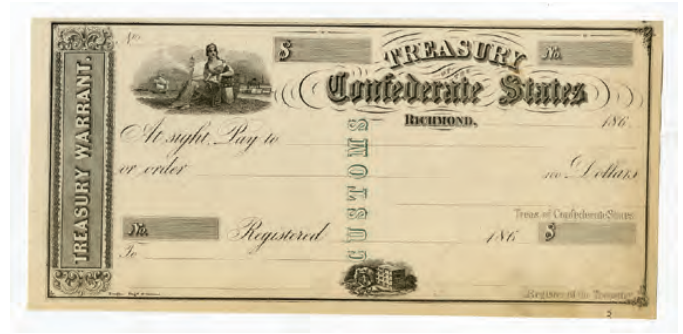 TREASURY WARRANT.
No.
$
TREASURY
No.
OF THE
Confederate States
RICHMOND,
186
At sight, Pay to
or order
100 Dollars
CUSTOMS
Treas of Confederate States
No.
Registered
186
$
To
Register of the Treasury